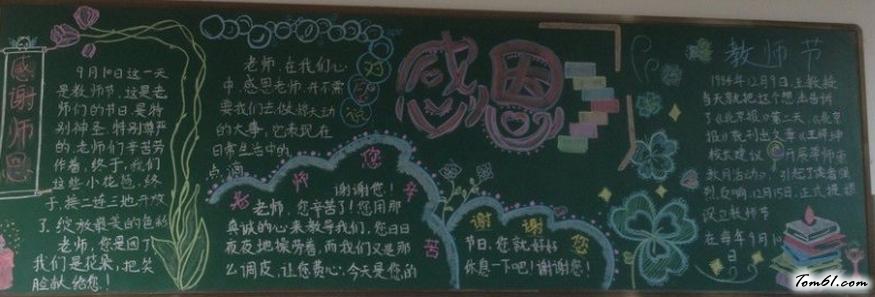 感谢师恩
9月10日这一天
是教师节,这是老
师们的节日,是特
别神圣,特别尊严
的,老师们辛苦劳
作着,终于,我们
这些小花苞,终
于,接二连三地开放
了,绽放最美的色彩
老师,您是园丁
我们是花朵,把笑
脸献给您!
老师,在我们心
中,感恩老师,并不需
要我们去做惊天动
的大事,它表现在
日常生活中的
点滴
感恩
老师 您辛苦
谢谢您!
老师,您辛苦了!您用那
真诚的心来教导我们,您日日
夜夜地操劳着,而我们又是那
么调皮,让您费心,今天是您的
谢谢您
节日,您就好好
休息一下吧!谢谢您!
教师节
1984年12月9日,王教授
当天就把这个想法告诉
了《北京
开展尊师重
教月活动》,引起了读者强
烈反响,12月15日,正式提议
设立教师节
在每年9月10
日
Tom61.com